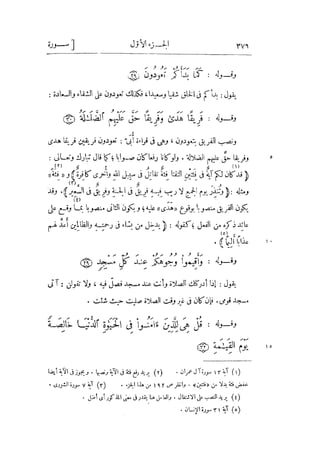 ٣٧٦ الجزء الأول [ سورة
وقوله : كَمَا بَدَأَكُمْ تَعُودُونَ ﴿٢٩﴾
يقول : بدأكم فى الخلق شقيا وسعيدا ، فكذلك تعودون على الشقاء والسعادة .
وقوله : فَرِيقًا هَدَىٰ وَفَرِيقًا حَقَّ عَلَيْهِمُ ٱلضَّلَٰلَةُ ﴿٣٠﴾
ونصب الفريق بتعودون ، وهى فى قراءة أبىّ : تعودون فريقين فريقا هدى
٥ وفريقا حقّ عليهم الضلالة . ولو كانا رفعا كان صوابا ؛ كما قال تبارك وتعالى :
﴿ قد كان لكم آية فى فئتين التقتا فئة تقاتل فى سبيل الله وأخرى كافرة ﴾(١) و « فئة »(٢)
ومثله : ﴿ وتنذر يوم الجمع لا ريب فيه فريق فى الجنة وفريق فى السعير ﴾(٣) . وقد
يكون الفريق منصوبا بوقوع « هدى » عليه ؛ و يكون الثانى منصوبا بما وقع على(٤)
عائد ذكره من الفعل ؛ كقوله : ﴿ يدخل من يشاء فى رحمته والظالمين أعدّ لهم
١٠ عذابا أليما ﴾(٥) .
وقوله : وَأَقِيمُوا۟ وُجُوهَكُمْ عِندَ كُلِّ مَسْجِدٍ ﴿٢٩﴾
يقول : إذا أدركتك الصلاة وأنت عند مسجد فصلّ فيه ، ولا تقولن : آتى
مسجد قومى . فإن كان فى غير وقت الصلاة صليت حيث شئت .
وقوله : قُلْ هِىَ لِلَّذِينَ ءَامَنُوا۟ فِى ٱلْحَيَوٰةِ ٱلدُّنْيَا خَالِصَةً
١٥ يَوْمَ ٱلْقِيَٰمَةِ ﴿٣٢﴾
(١) آية ١٣ سورة آل عمران . (٢) يريد رفع فئة فى الآية ونصبها . ويجوز فى الآية أيضا
خفض فئة بدلا من « فئتين » وانظر ص ١٩٢ من هذا الجزء . (٣) آية ٧ سورة الشورى .
(٤) يريد النصب على الاشتغال . والعامل هنا يقدر فى معنى المذكور أى أضل .
(٥) آية ٣١ سورة الإنسان .